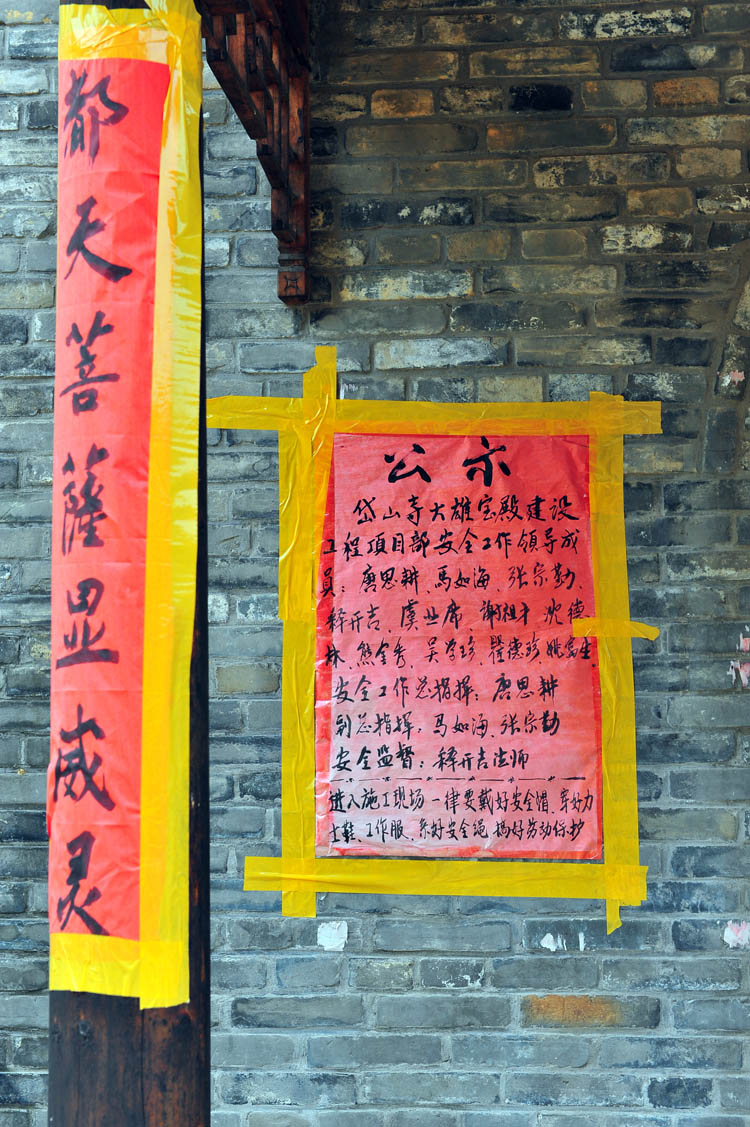 都天菩萨显威灵
公示
岱山寺大雄宝殿建设
工程项目部安全工作领导成
员：唐思耕、馬如海、张宗勤、
释开吉、虞业席、谢祖才、沈德
林、熊金秀、吴学珍、瞿德珍、姚富生、
安全工作总指挥：唐思耕
副总指挥：馬如海、张宗勤
安全监督：释开吉法师
进入施工现场一律要戴好安全帽、穿好力
士鞋、工作服、系好安全绳、搞好劳动保护